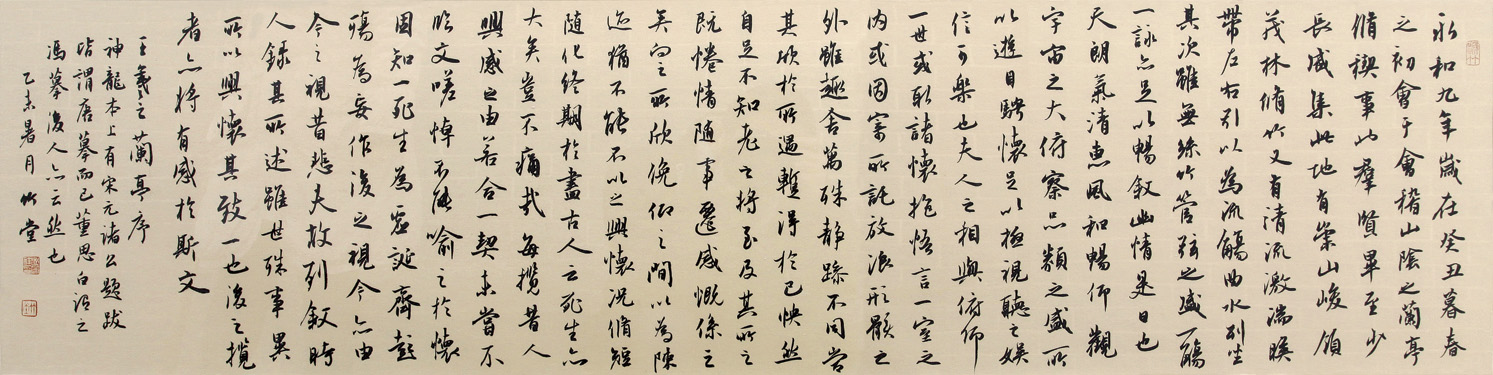 永和九年歲在癸丑暮春
之初會于會稽山陰之蘭亭
脩稧事也羣賢畢至少
長咸集此地有崇山峻領
茂林脩竹又有清流激湍暎
帶左右引以為流觴曲水列坐
其次雖無絲竹管弦之盛一觴
一詠亦足以暢敘幽情是日也
天朗氣清惠風和暢仰觀
宇宙之大俯察品類之盛所
以遊目騁懷足以極視聽之娛
信可樂也夫人之相與俯仰
一世或取諸懷抱悟言一室之
內或因寄所託放浪形骸之
外雖趣舍萬殊静躁不同當
其欣於所遇暫得於己怏然
自足不知老之將至及其所之
既惓情隨事遷感慨係之
矣向之所欣俛仰之間以為陳
迹猶不能不以之興懷況脩短
隨化終期於盡古人云死生亦
大矣豈不痛哉每攬昔人
興感之由若合一契未嘗不
臨文嗟悼不能喻之於懷
固知一死生為虛誕齊彭
殤為妄作後之視今亦由
今之視昔悲夫故列敘時
人錄其所述雖世殊事異
所以興懷其致一也後之攬
者亦將有感於斯文
王羲之蘭亭序
神龍本上有宋元諸公題跋
謂唐摹而已董思白
馮摹後人亦云然也
乙未暑月竹堂